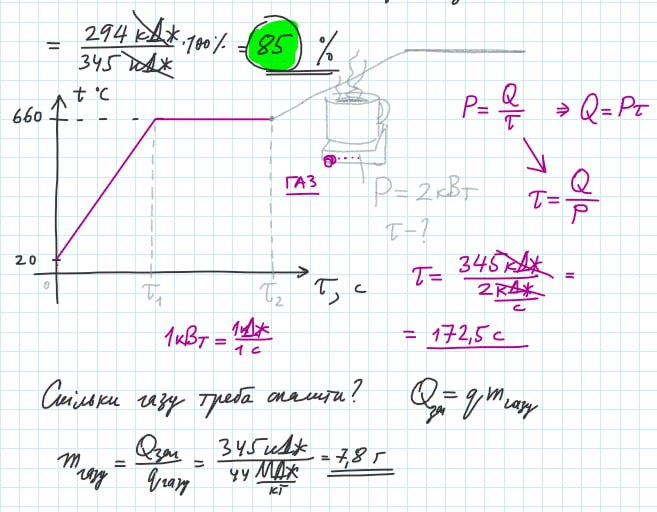 = 294 кДж / 345 кДж · 100% = 85 %
t °C
660
20
0
τ₁
τ₂
τ, c
ГАЗ
P = 2 кВт
τ - ?
P = Q/τ ⇒ Q = Pτ
τ = Q/P
τ = 345 кДж / 2 кДж/c =
= 172,5 c
1 кВт = 1 кДж / 1 c
Скільки газу треба спалити?
Qзаг = q mгазу
mгазу = Qзаг / qгазу = 345 кДж / 44 МДж/кг = 7,8 г